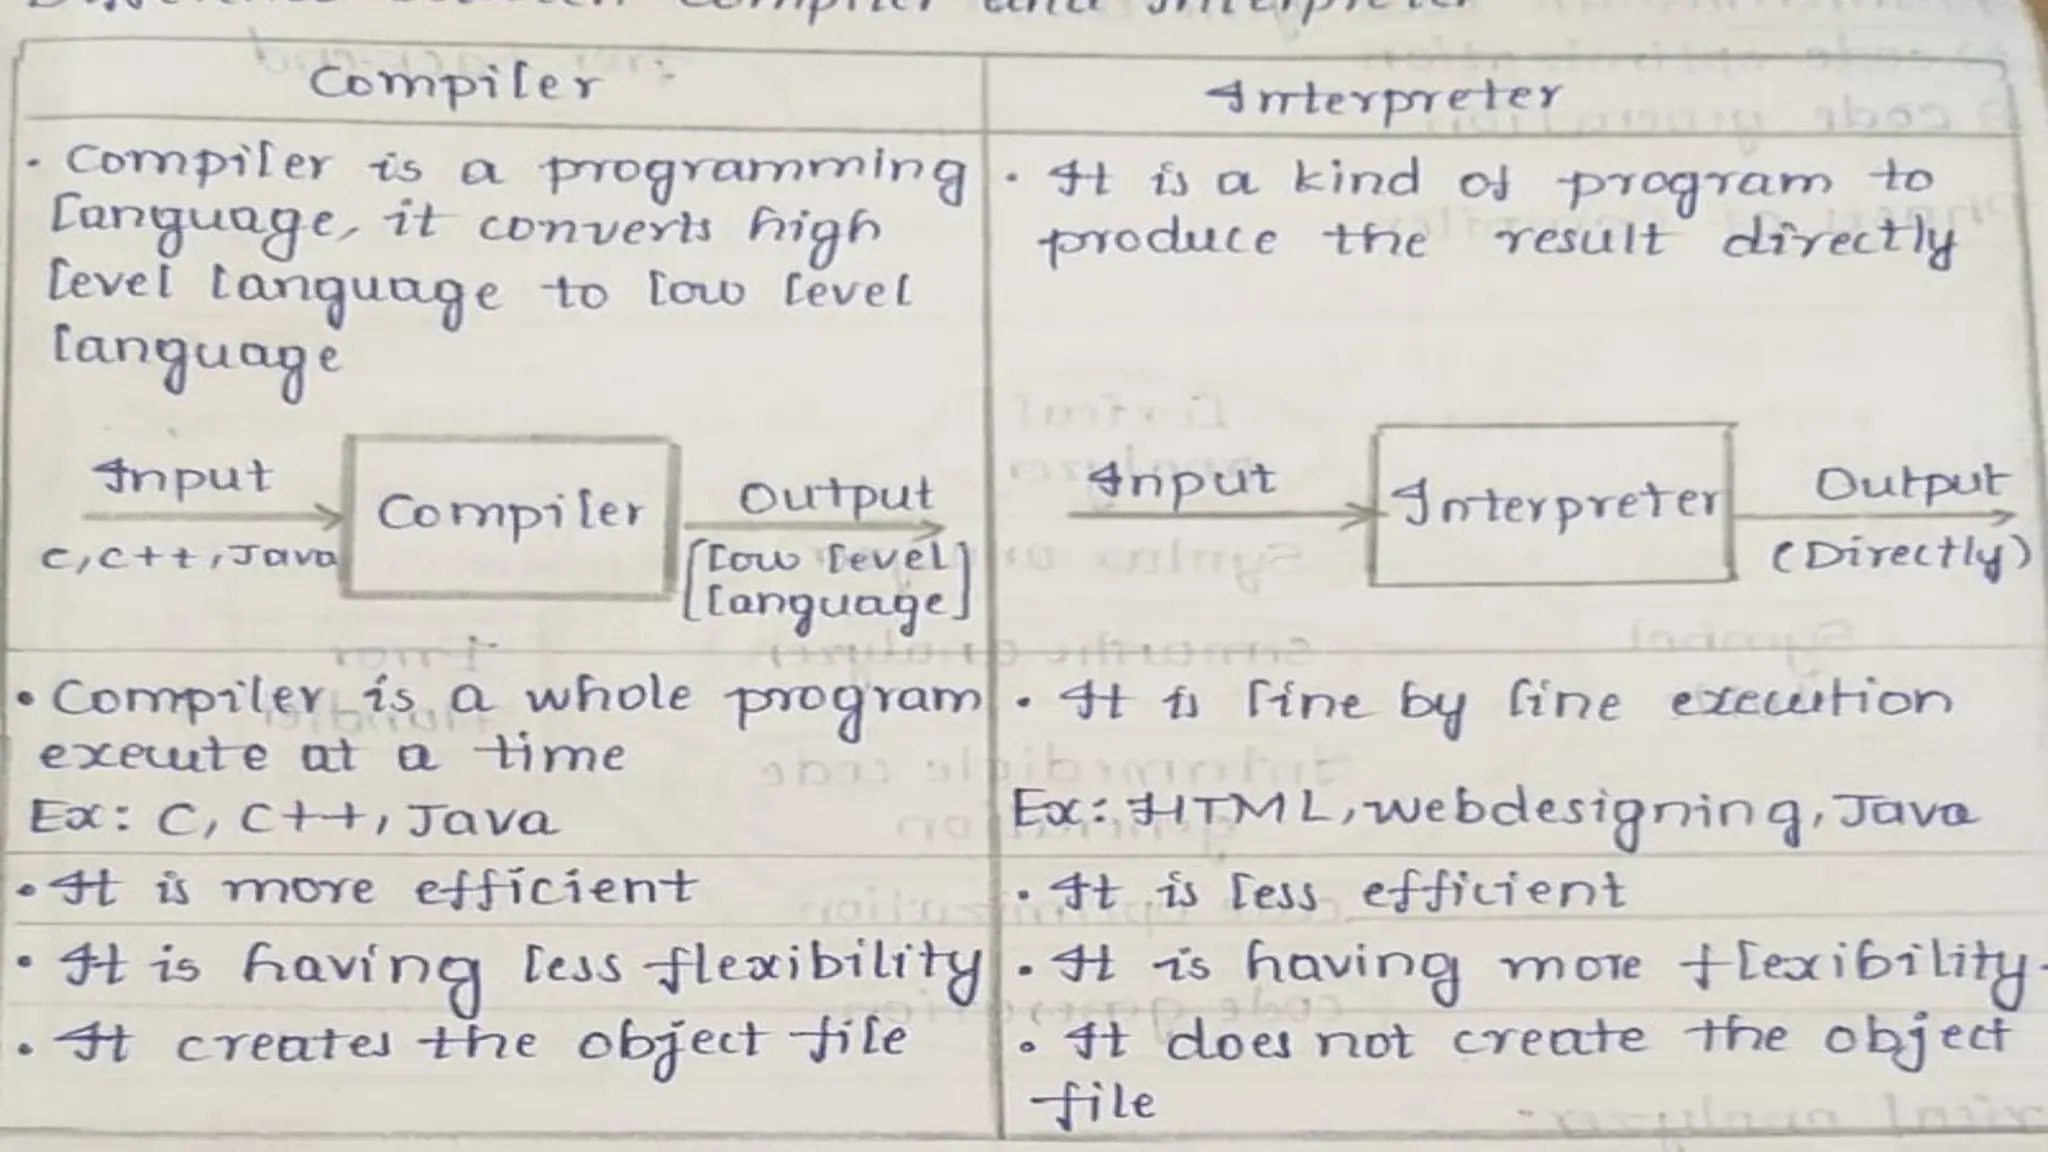 Difference between Compiler and Interpreter
Compiler
Interpreter
• Compiler is a programming
language, it converts high
level language to low level
language
Input
C, C++, Java
Compiler
Output
[low level
language]
• It is a kind of program to
produce the result directly
Input
Interpreter
Output
(Directly)
• Compiler is a whole program
execute at a time
Ex: C, C++, Java
• It is line by line execution
Ex: HTML, webdesigning, Java
• It is more efficient
• It is less efficient
• It is having less flexibility
• It is having more flexibility.
• It creates the object file
• It does not create the object
file